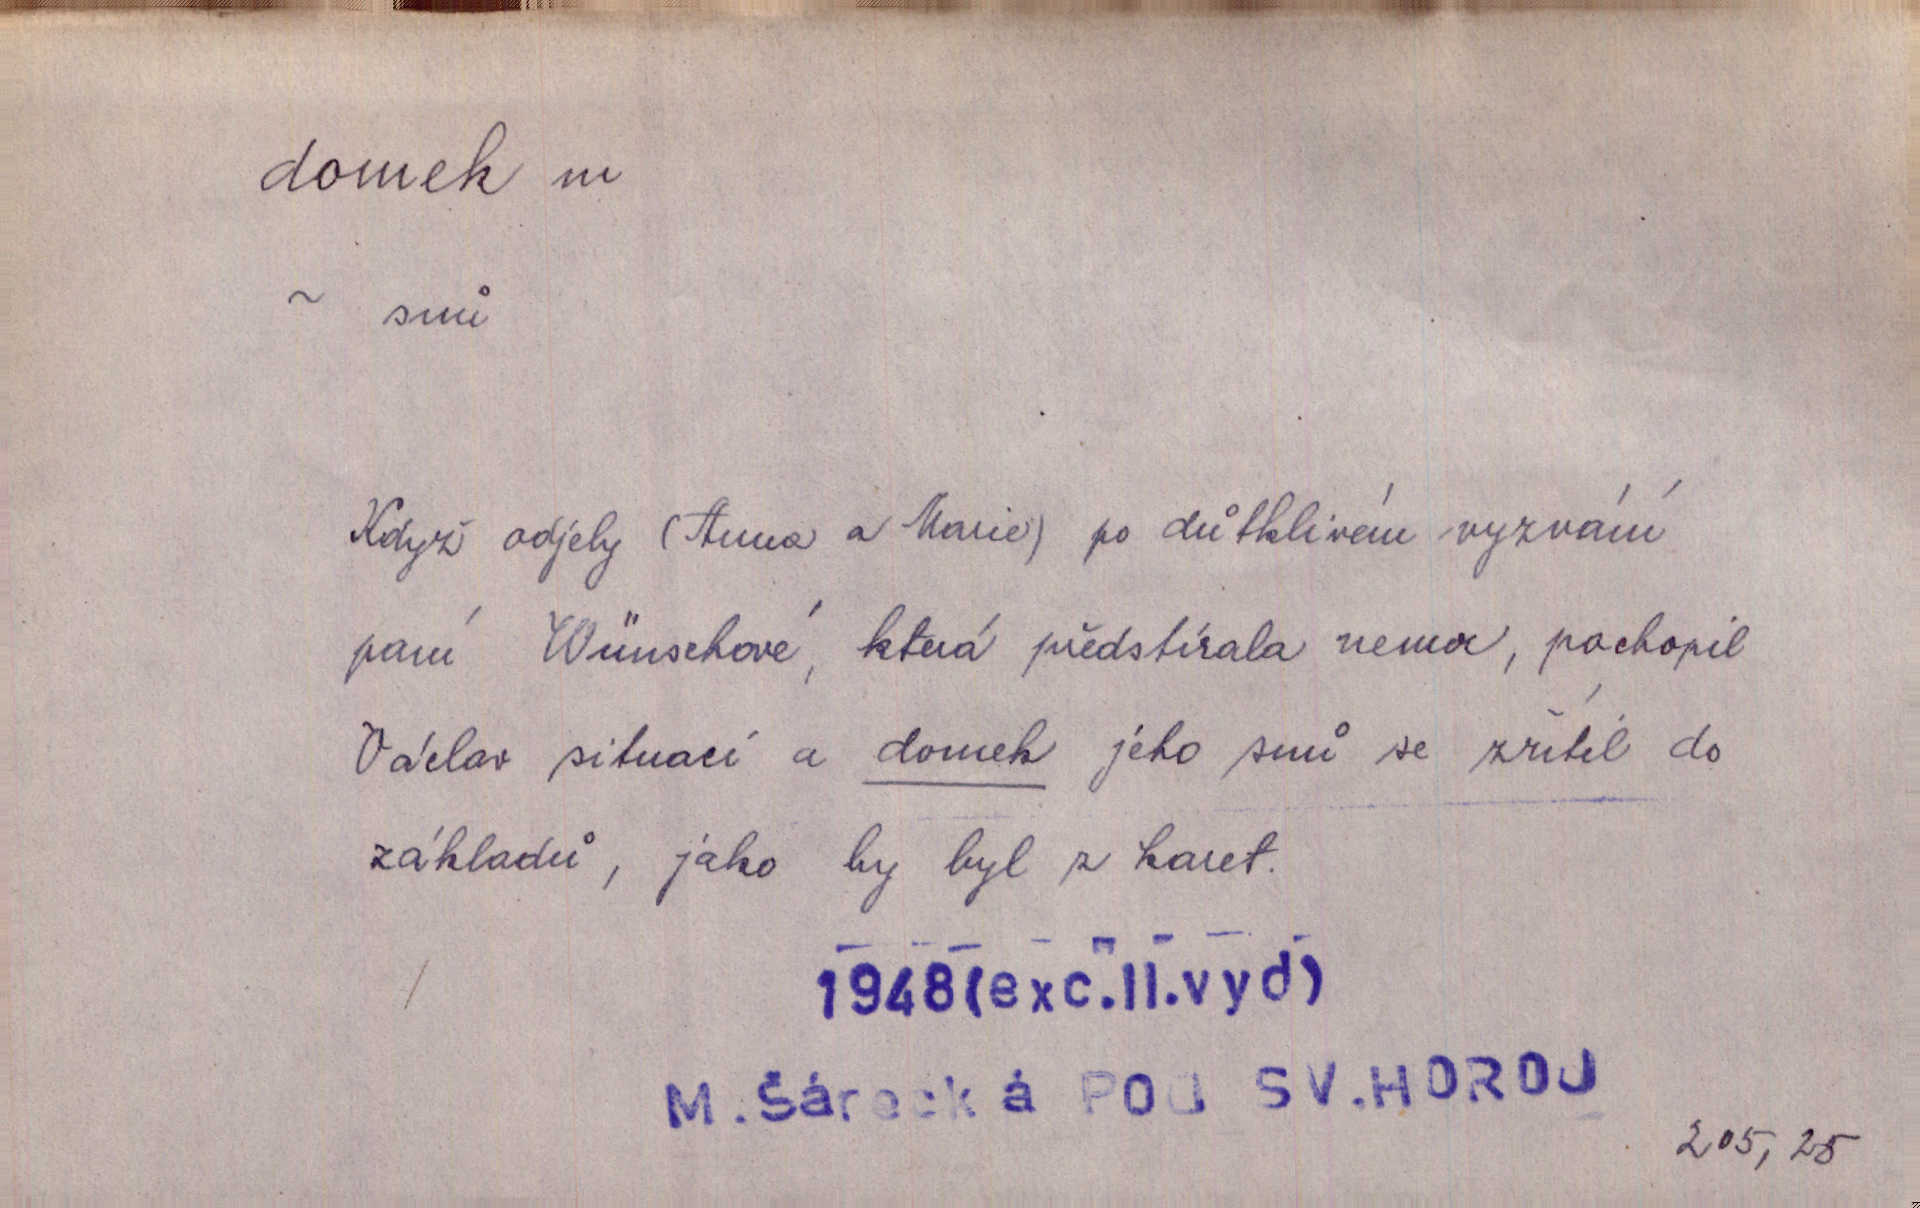 domek m
~ snů
Když odjely (Anna a Marie) po důtklivém vyzvání
paní Wünschové, která předstírala nemoc, pochopil
Václav situaci a domek jeho snů se zřítil do
základů, jako by byl z karet.
1948(exc.II.vyd)
M.Šárecká POD SV.HOROU
205, 25